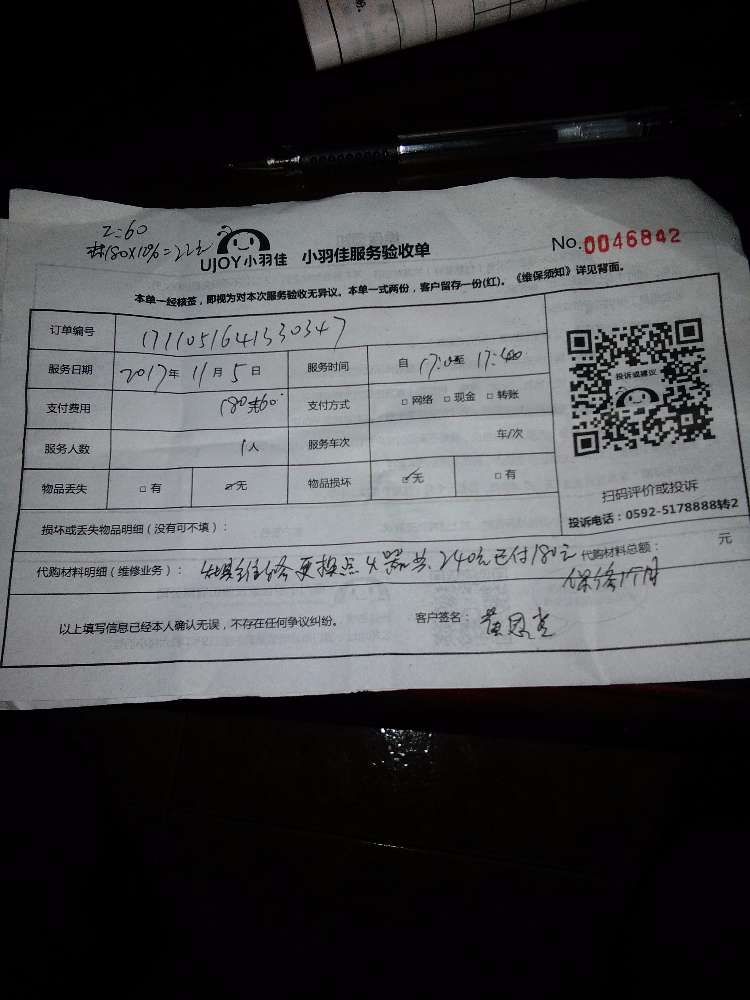 工=60
180×10%=22元
UJOY小羽佳 小羽佳服务验收单
No.0046842
本单一经核签，即视为对本次服务验收无异议。本单一式两份，客户留存一份(红)。《维保须知》详见背面。
订单编号 1711051641330347
服务日期 2017年 11月 5日 服务时间 自 17:0 至 17:40
支付费用 180 60 支付方式 □ 网络 □ 现金 □ 转账
服务人数 1人 服务车次 车/次
物品丢失 □ 有 ☑无 物品损坏 ☑无 □ 有
投诉或建议
扫码评价或投诉
投诉电话：0592-5178888转2
损坏或丢失物品明细（没有可不填）：
代购材料明细（维修业务）： 维修更换点火器共240元已付180元 代购材料总额： 元
保修1个月
以上填写信息已经本人确认无误，不存在任何争议纠纷。 客户签名： 黄恩